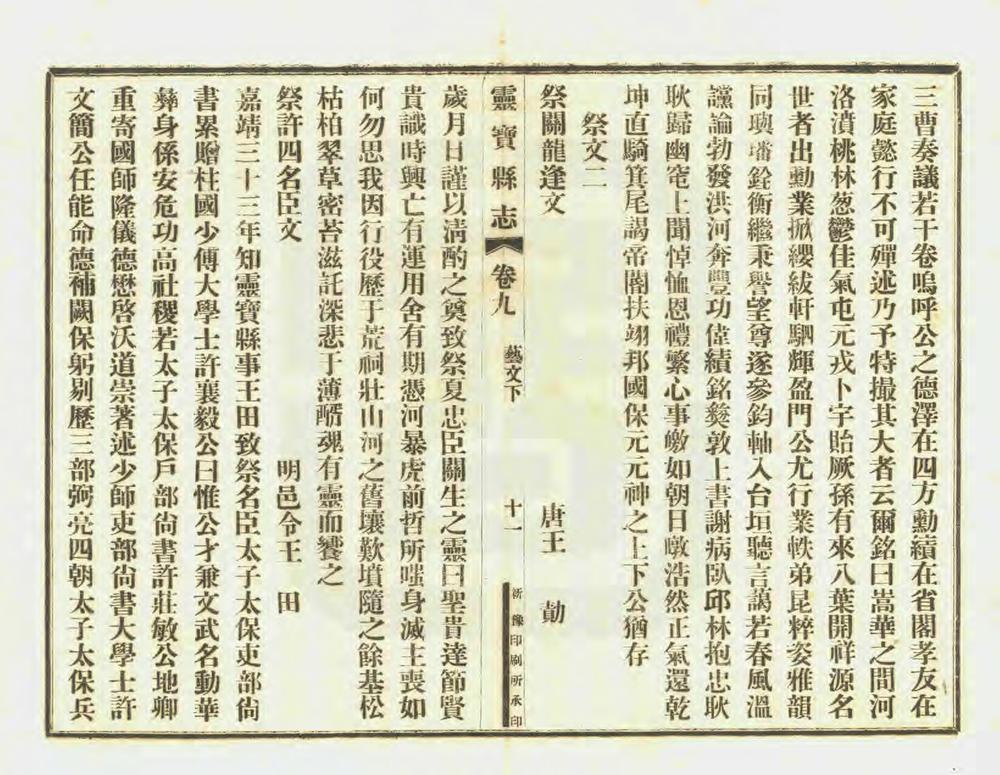 三曹奏議若干卷嗚呼公之德澤在四方勳績在省閣孝友在
家庭懿行不可殫述乃予特撮其大者云爾銘曰嵩華之間河
洛濆桃林葱鬱佳氣屯元戎卜宇貽厥孫有來八葉開祥源名
世者出勳業掀纓紱軒駟輝盈門公尤行業軼弟昆粹姿雅韻
同璵璠銓衡繼秉譽望尊遂參鈞軸入台垣聽言藹若春風溫
讜論勃發洪河奔豐功偉績銘彝敦上書謝病臥邱林抱忠耿
耿歸幽窀上聞悼恤恩禮繁心事皦如朝日暾浩然正氣還乾
坤直騎箕尾謁帝閽扶翊邦國保元元神之上下公猶存
祭文二
祭關龍逢文 唐王 勛
靈寶縣志 卷九 藝文下 十一 新豫印刷所承印
歲月日謹以清酌之奠致祭夏忠臣關生之靈曰聖貴達節賢
貴識時興亡有運用舍有期憑河暴虎前哲所嗤身滅主喪如
何勿思我因行役歷于荒祠壯山河之舊壤歎墳隧之餘基松
枯柏翠草密苔滋託深悲于薄酹魂有靈而饗之
祭許四名臣文 明邑令王 田
嘉靖三十三年知靈寶縣事王田致祭名臣太子太保吏部尙
書累贈柱國少傅大學士許襄毅公曰惟公才兼文武名動華
彝身係安危功高社稷若太子太保戶部尙書許莊敏公地卿
重寄國師隆儀德懋啓沃道崇著述少師吏部尙書大學士許
文簡公任能命德補闕保躬剔歷三部弼亮四朝太子太保兵